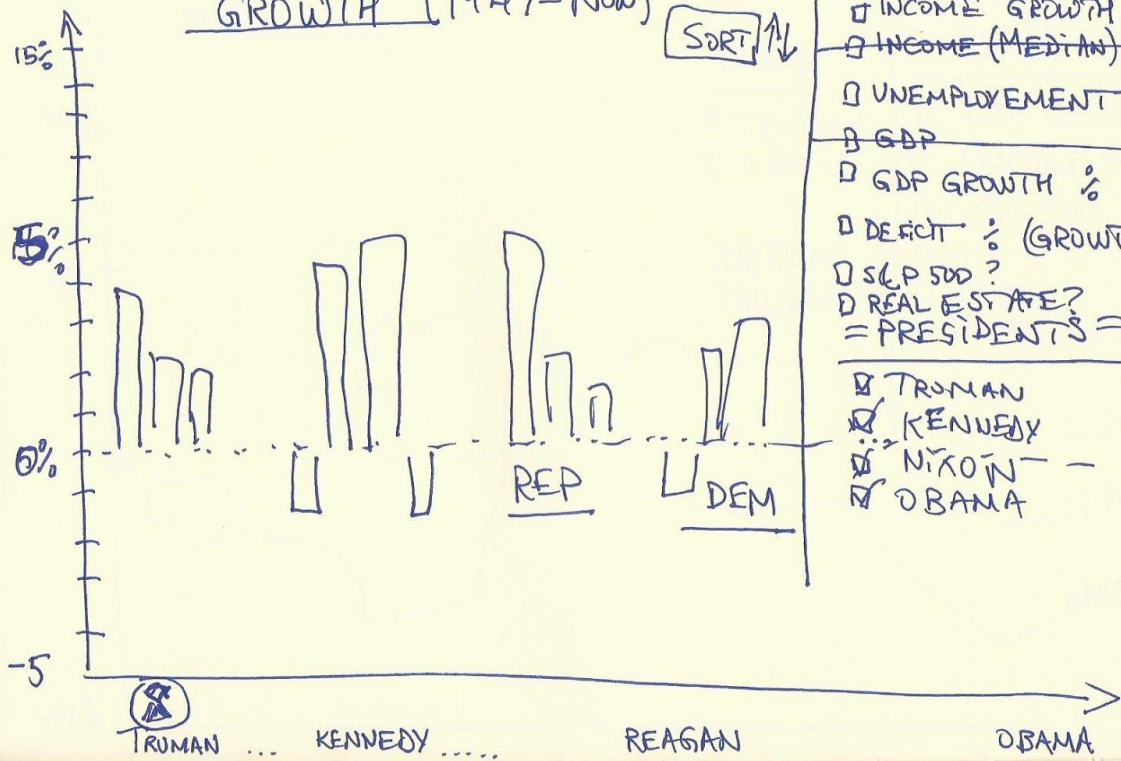 GROWTH (1947-NOW)
SORT
15%
5%
0%
-5
REP
DEM
TRUMAN ... KENNEDY ..... REAGAN OBAMA
INCOME GROWTH
INCOME (MEDIAN)
UNEMPLOYEMENT
GDP
GDP GROWTH %
DEFICIT % (GROWT
S&P 500?
REAL ESTATE?
= PRESIDENTS =
TRUMAN
KENNEDY
NIXON
OBAMA